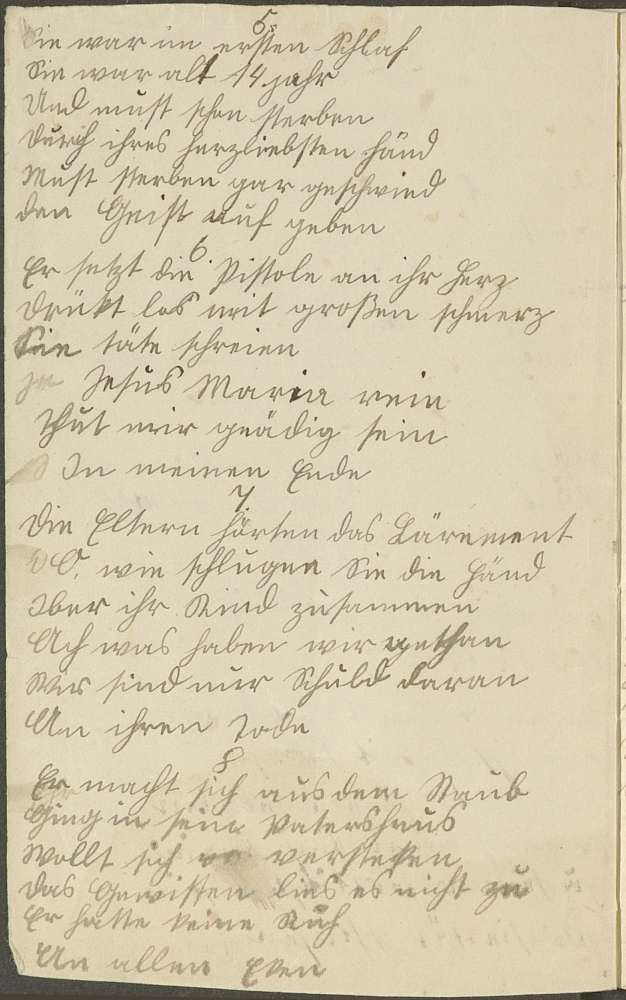 5
Sie war im ersten Schlaf
Sie war alt 14 jahr
Und must schon sterben
durch ihres herzliebsten händ
Must sterben gar geschwind
den Geist auf geben
6.
Er setzt die Pistole an ihr Herz
drükt los mit großen schmerz
Sie täte schreien
Jesus Maria rein
Thut mir gnädig sein
In meinen Ende
7
Die Eltern hörten das Lärement
O, wie schlugen Sie die Händ
Iber ihr Kind zusammen
Ach was haben wir gethan
Wir sind nur Schuld daran
An ihren Tode
8
Er macht sich aus dem Staub
Ging in sein Vatershaus
Wollt sich versteken
das Gewissen lies es nicht zu
Er hatte keine Ruh
An allen Eken